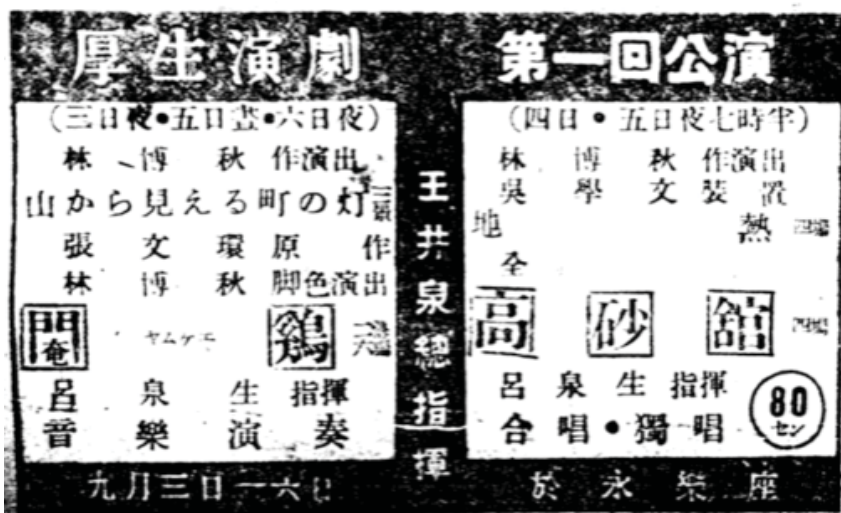 厚生演劇 第一回公演
(三日夜•五日晝•六日夜)
林博秋作演出
山から見える町の灯
張文環原作
林博秋脚色演出
閹 ヤムケエ 鷄
呂泉生指揮
音樂演奏
九月三日—六日
王井泉總指揮
(四日•五日夜七時半)
林博秋作演出
吳學文裝置
地熱
全
高砂舘
呂泉生指揮
合唱•獨唱
80セン
於永樂座